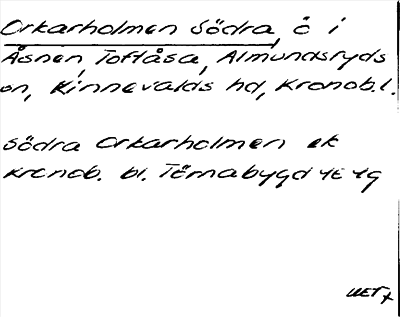 Orkarholmen Södra, ö i
Åsnen, Toftåsa, Almundsryds
sn, Kinnevalds hd, Kronob. l.
Södra Orkarholmen ek
Kronob. bl. Törnabygd 4E 4g